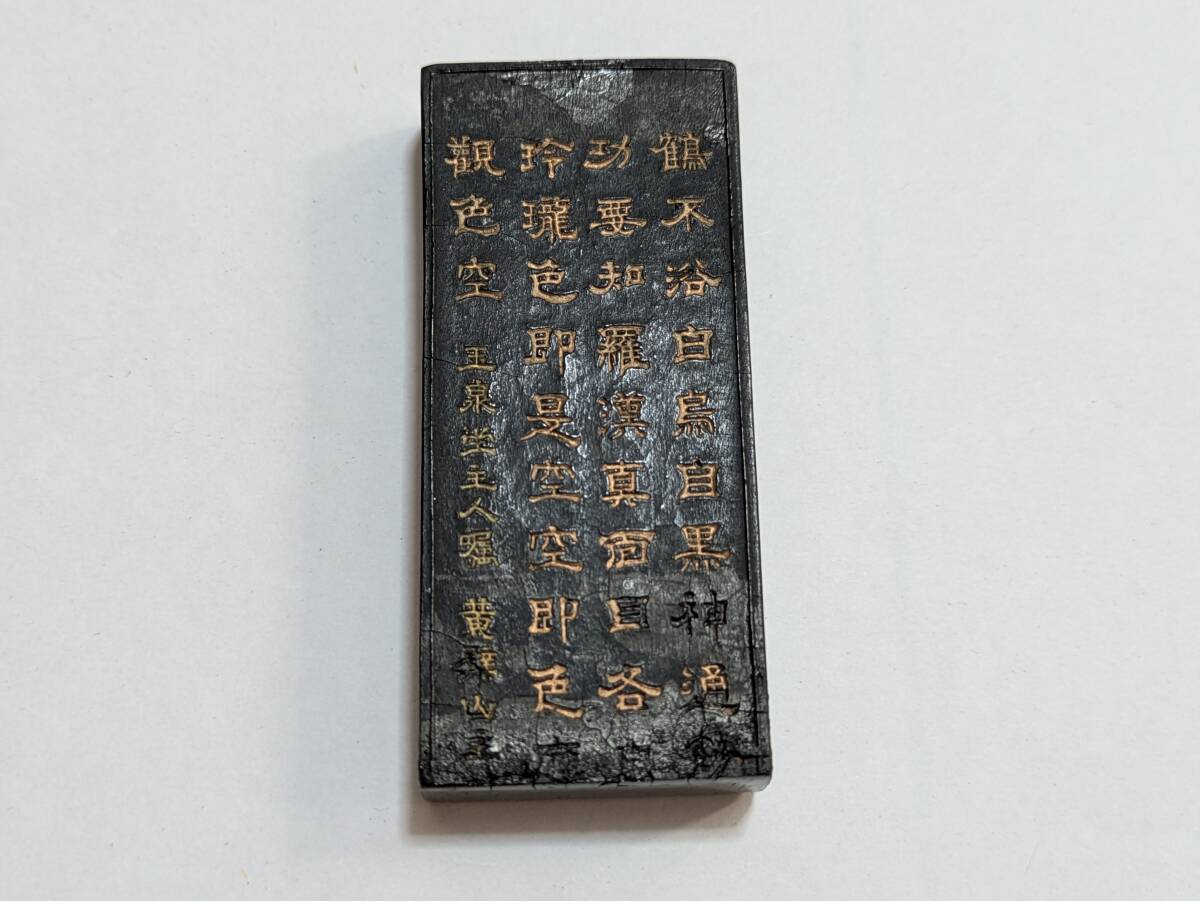 鶴不浴白烏自黒神通
功要知羅漢真面目各
玲瓏色即是空空即色
觀色空 玉泉坐主人嘱 黄檗山主